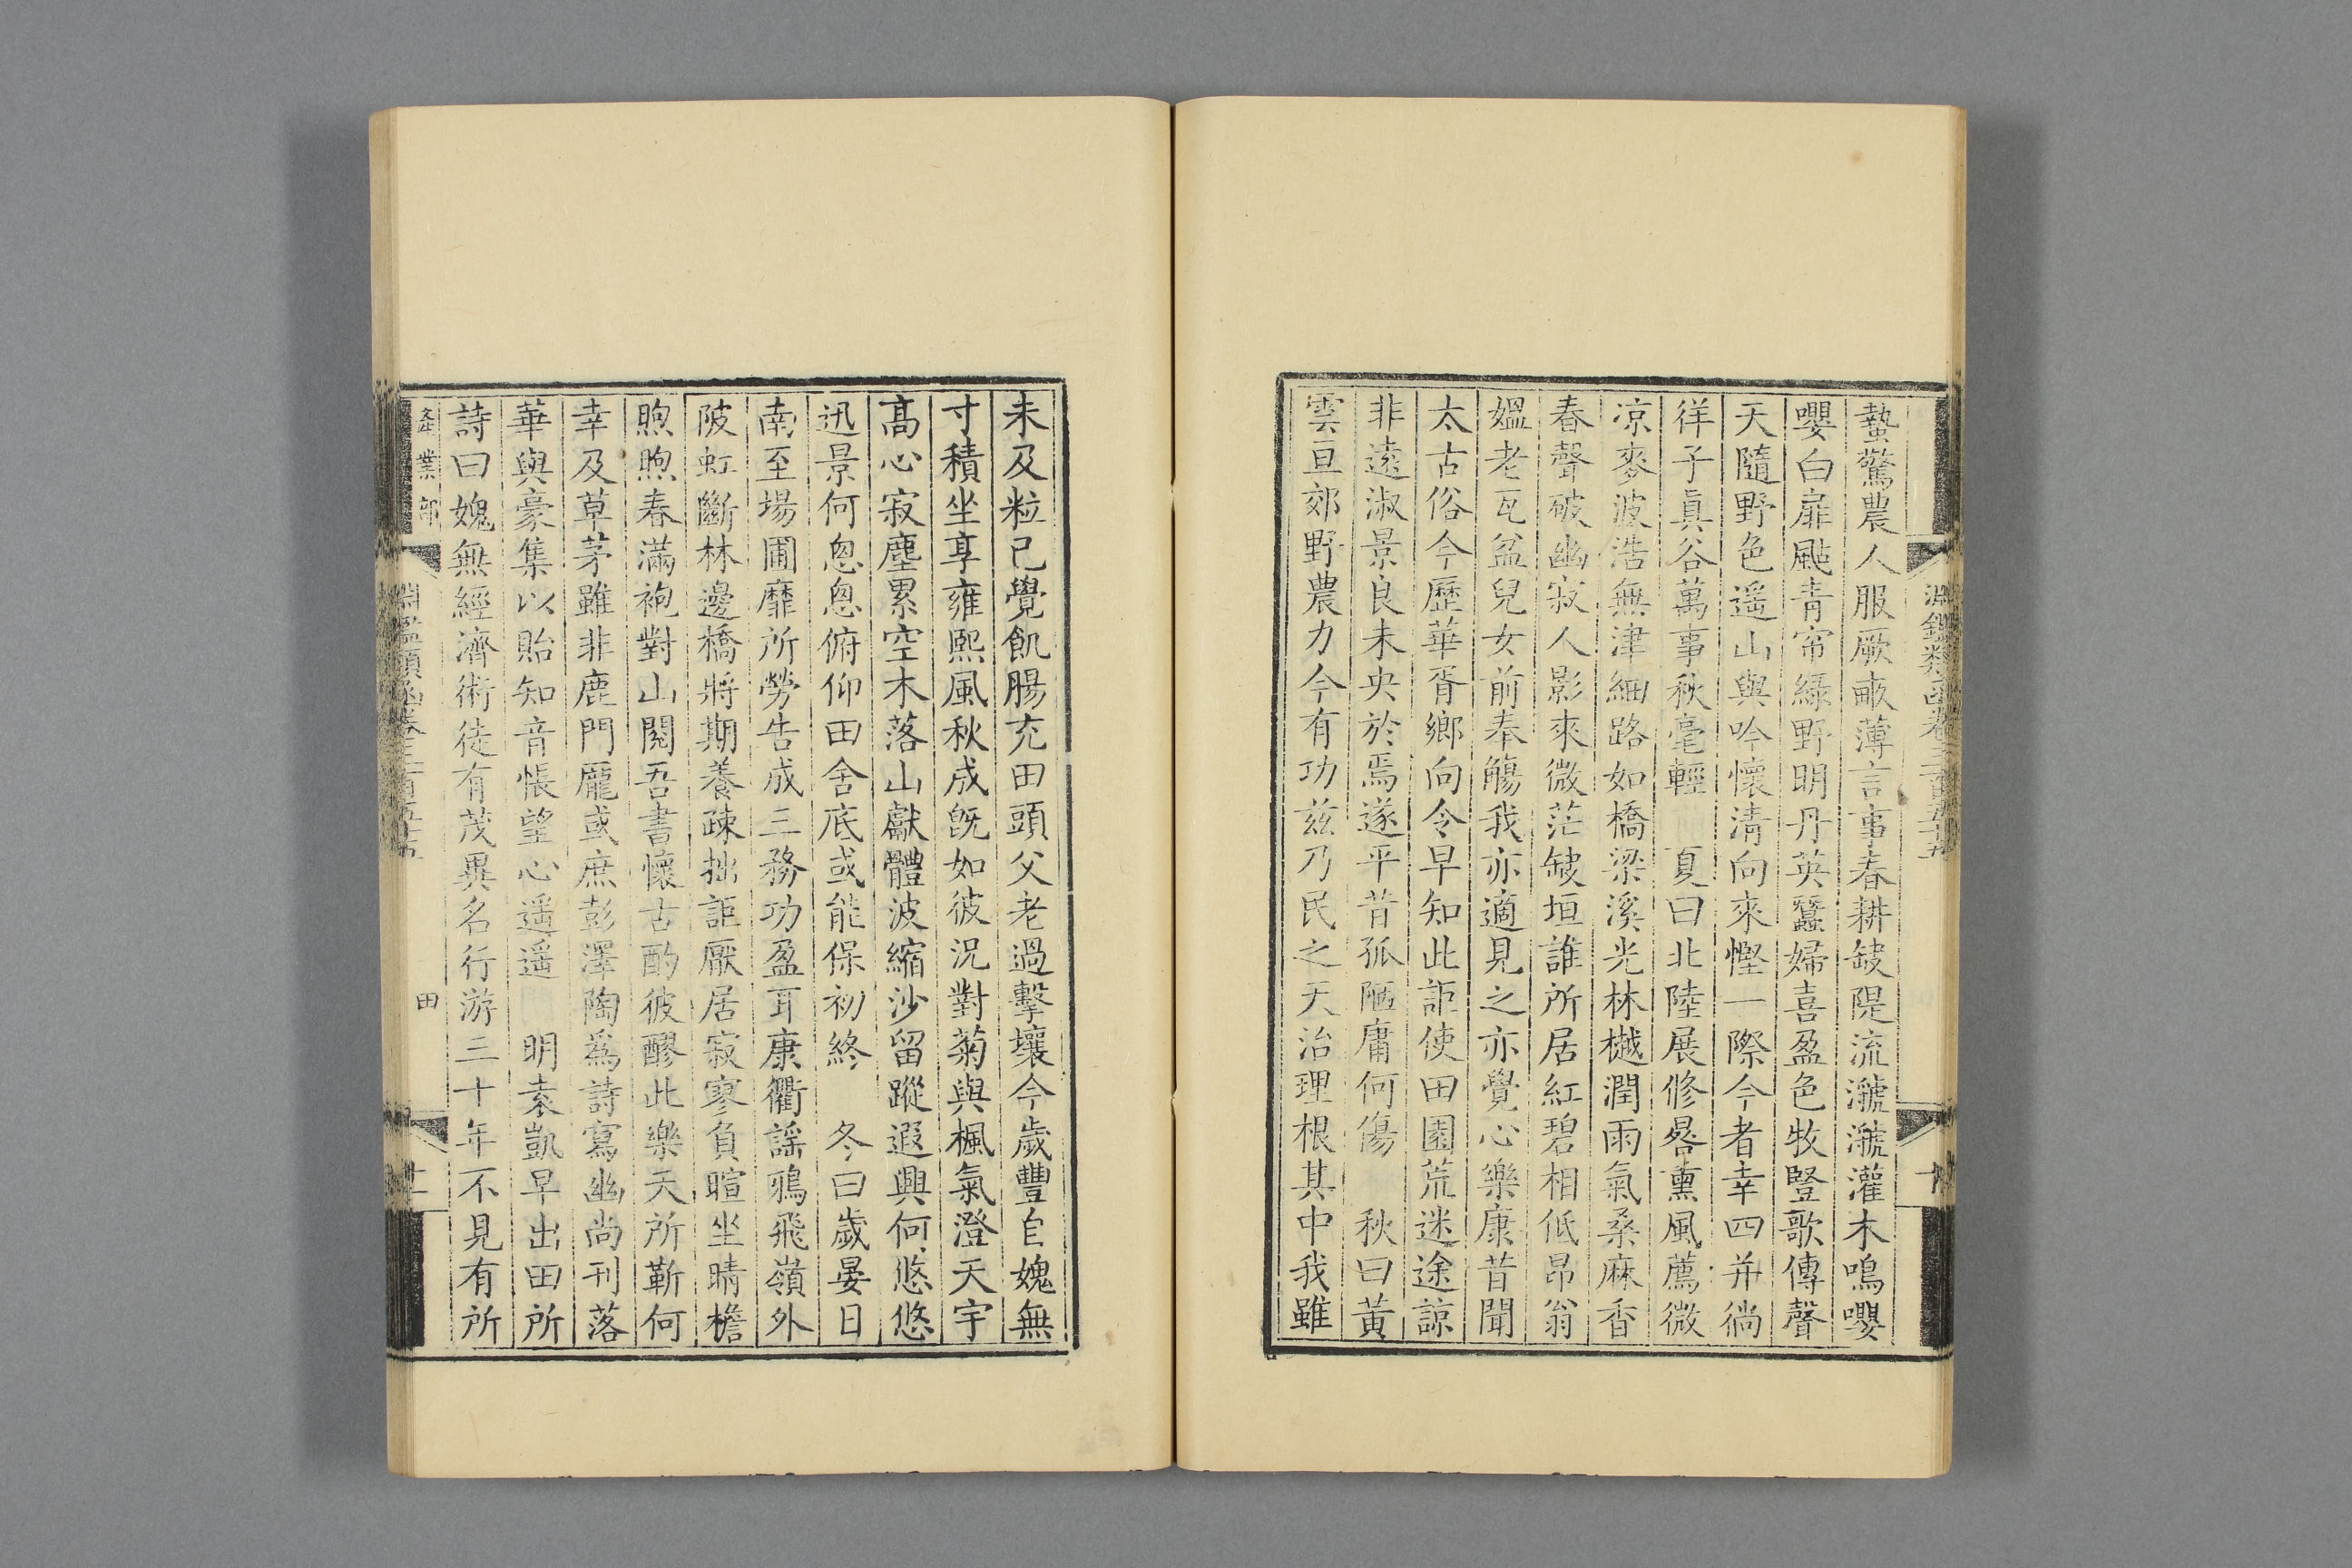 蟄驚農人服厥畝薄言事春耕缺隄流㶁㶁灌木鳴嚶
嚶白扉颭青帘緑野明丹英蠶婦喜盈色牧豎歌傳聲
天隨野色遥山與吟懷清向來慳一際今者幸四并徜
徉子眞谷萬事秋毫輕　夏曰北陸展修晷薰風薦微
凉麥波浩無津細路如橋梁溪光林樾潤雨氣桑麻香
春聲破幽寂人影來微茫缺垣誰所居紅碧相低昂翁
媼老瓦盆兒女前奉觴我亦適見之亦覺心樂康昔聞
太古俗今歷華胥鄉向令早知此詎使田園荒迷途諒
非遠淑景良未央於焉遂平昔孤陋庸何傷　秋曰黃
雲亘郊野農力今有功兹乃民之天治理根其中我雖
未及粒已覺飢腸充田頭父老過擊壤今歲豐自媿無
寸積坐享雍熙風秋成旣如彼況對菊與楓氣澄天宇
高心寂塵累空木落山獻體波縮沙留蹤遐興何悠悠
迅景何悤悤俯仰田舍底或能保初終　冬曰歲晏日
南至場圃靡所勞告成三務功盈耳康衢謡鴉飛嶺外
陂虹斷林邊橋將期養疎拙詎厭居寂寥負暄坐晴檐
煦煦春滿袍對山閱吾書懷古酌彼醪此樂天所靳何
幸及草茅雖非鹿門龐或庶彭澤陶爲詩寫幽尚刊落
華與豪集以貽知音悵望心遥遥　明袁凱早出田所
詩曰媿無經濟術徒有茂異名行游三十年不見有所
產業部
淵鑑類函卷三百五十五
田